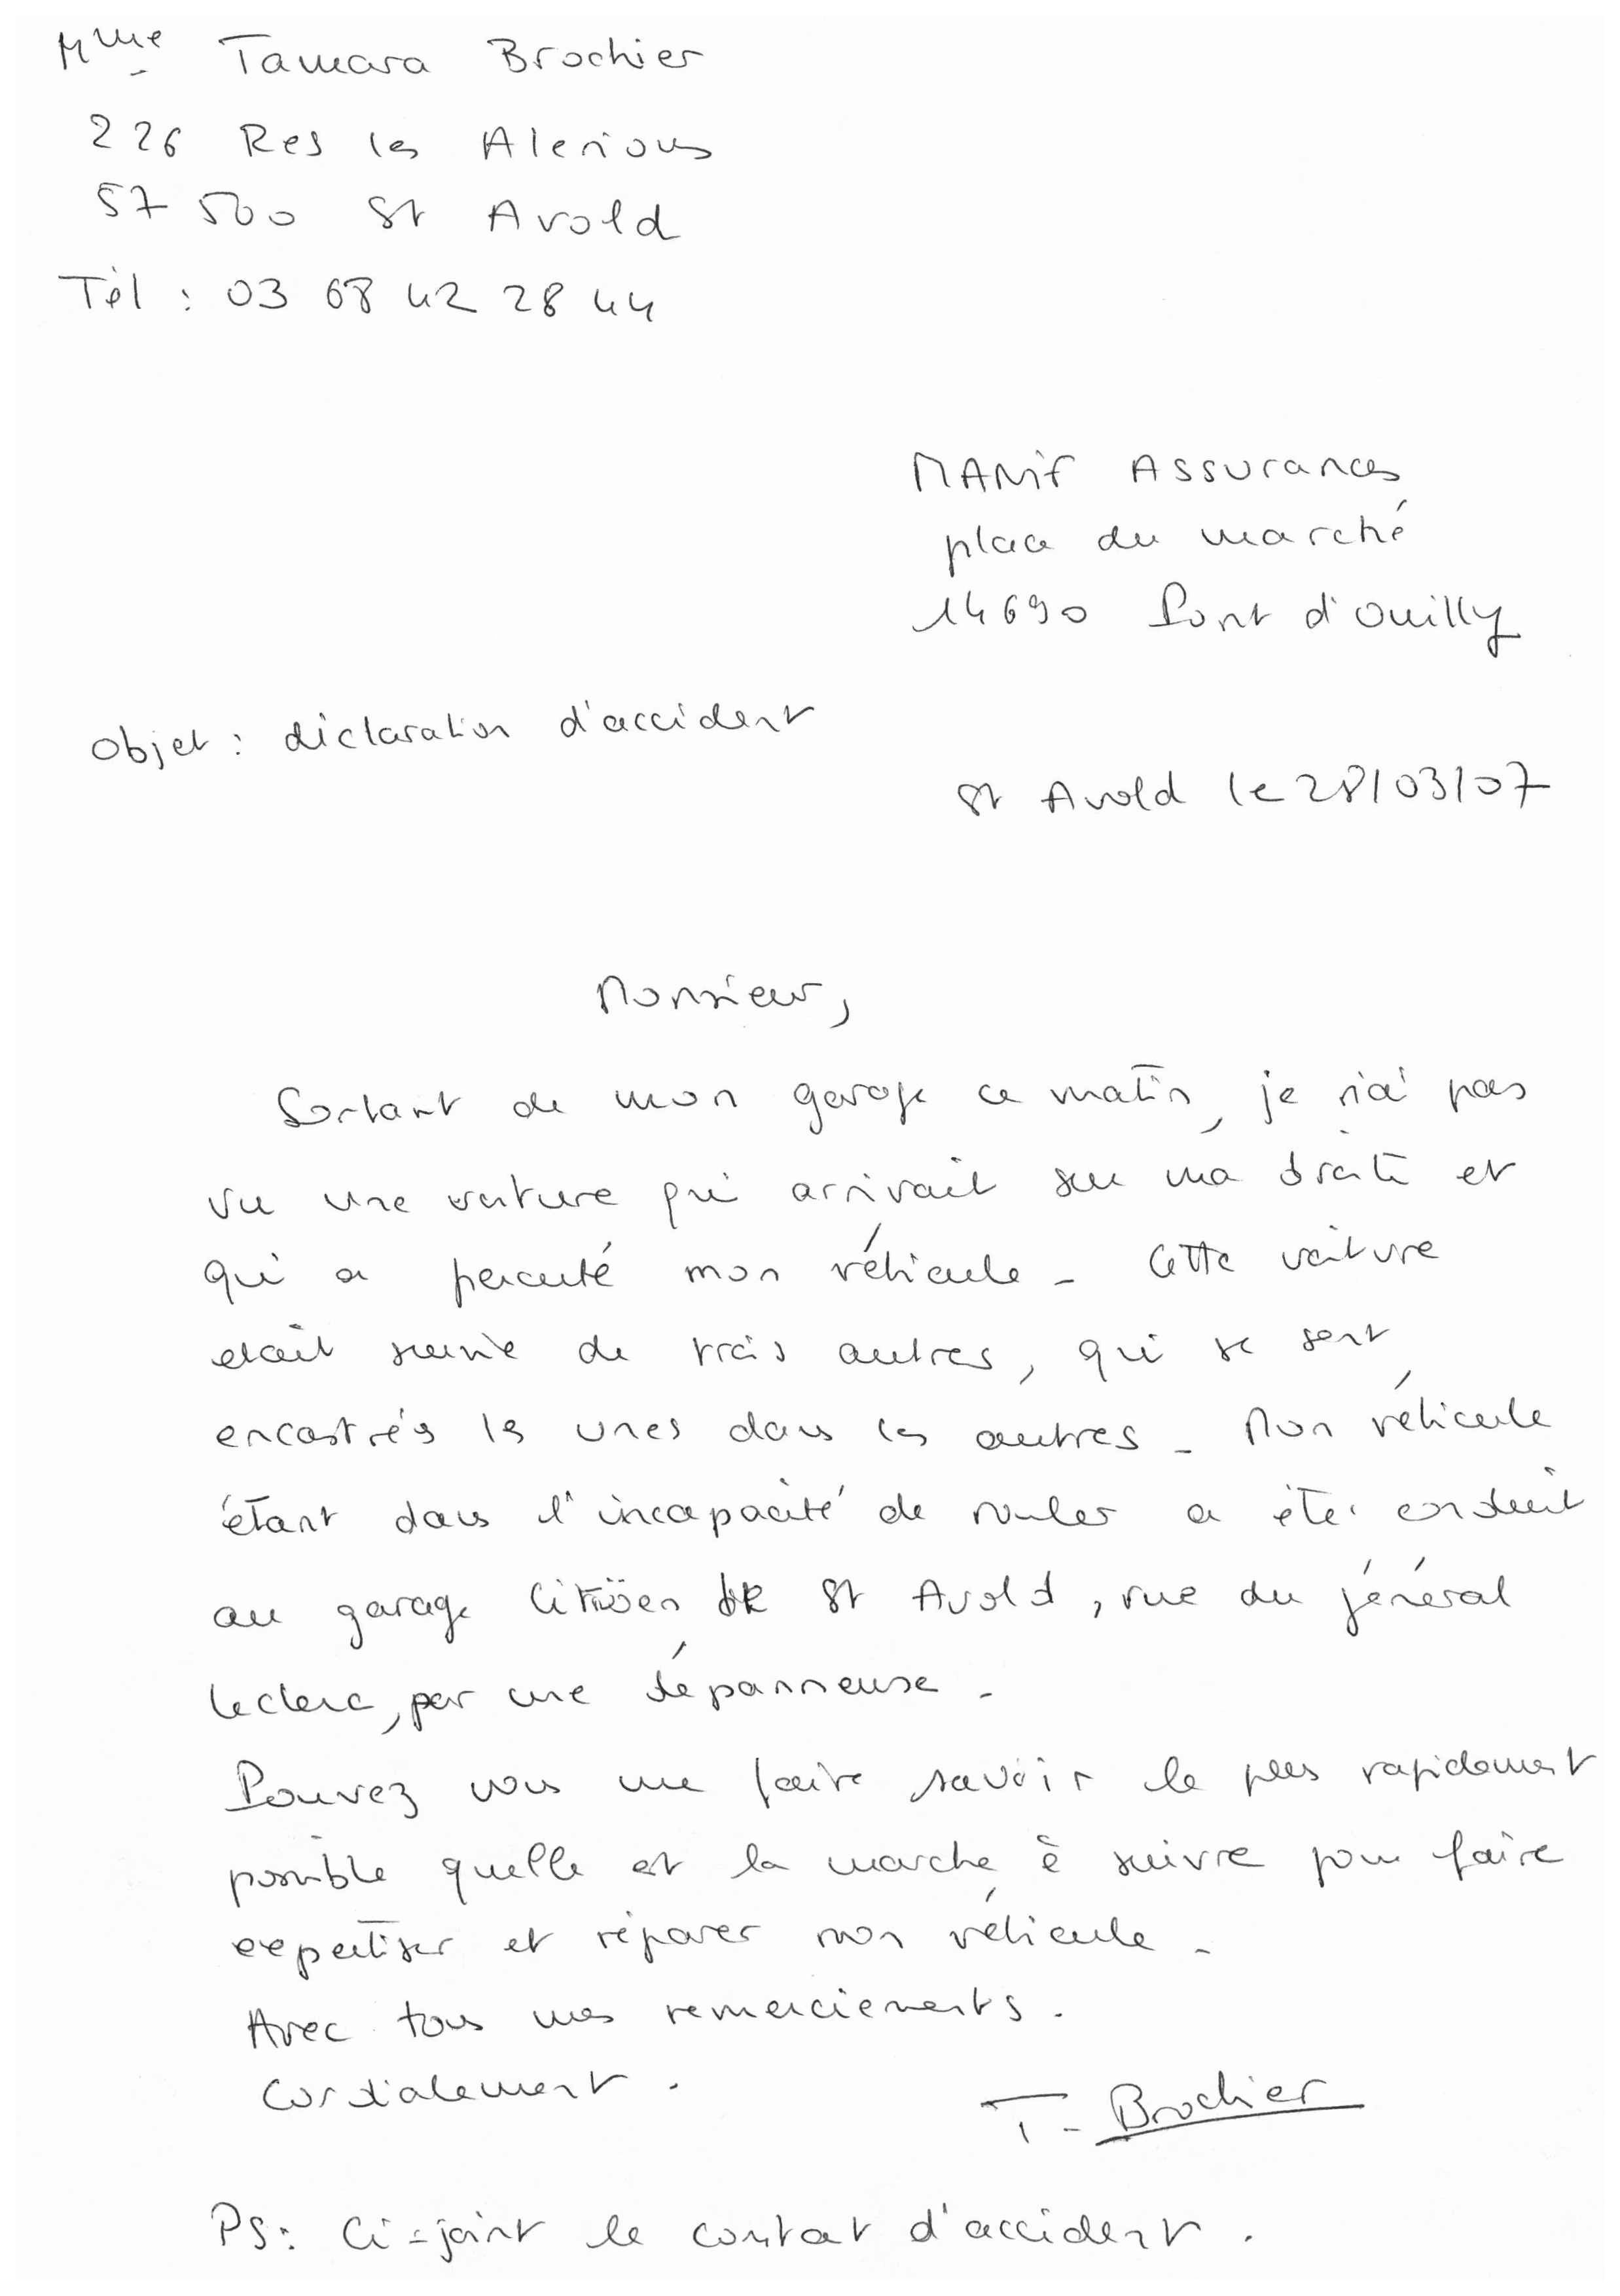 Mme Tamara Brochier
226 Res les Alerions
57 500 St Avold
Tél : 03 68 42 28 44
MANif Assurances
place du marché
14690 Pont d'Ouilly
Objet : déclaration d'accident
St Avold le 28/03/07
Monsieur,
Sortant de mon garage ce matin, je n'ai pas
vu une voiture qui arrivait sur ma droite et
qui a percuté mon véhicule. Cette voiture
etait suivie de trois autres, qui se sont
encastrés les unes dans les autres. Mon véhicule
étant dans l'incapacité de rouler a été conduit
au garage Citröen de St Avold, rue du général
leclerc, par une dépanneuse.
Pouvez vous me faire savoir le plus rapidement
possible quelle est la marche à suivre pour faire
expertiser et réparer mon véhicule.
Avec tous mes remerciements.
Cordialement.
T. Brochier
PS : Ci-joint le contat d'accident.